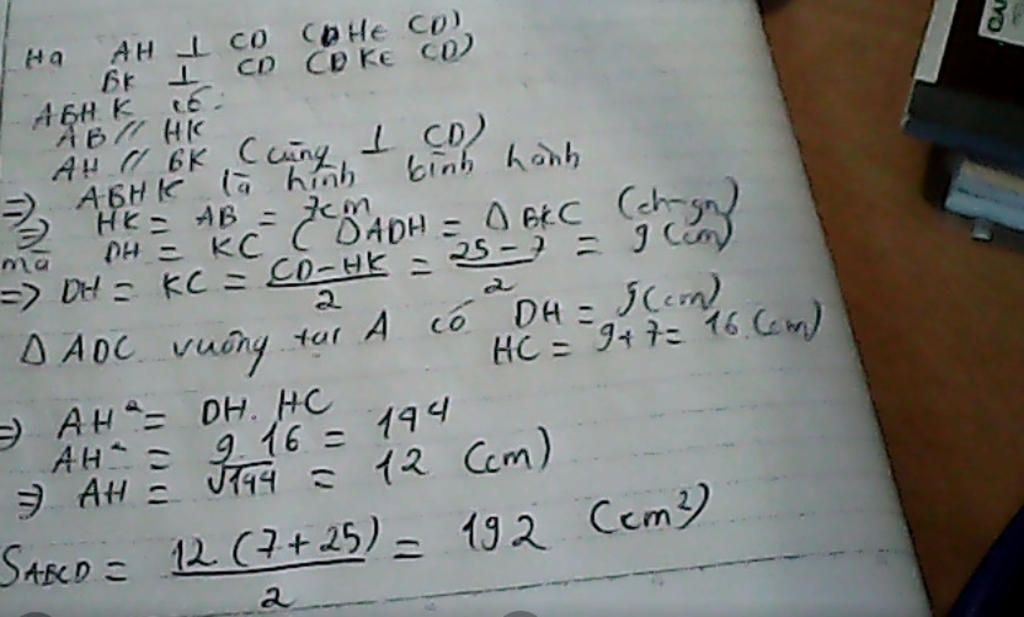 Hạ AH ⊥ CD (H∈ CD)
BK ⊥ CD (K∈ CD)
ABHK có:
AB // HK
AH // BK (cùng ⊥ CD)
=> ABHK là hình bình hành
=> HK = AB = 7cm
mà DH = KC (ΔADH = ΔBKC (ch-gn)
=> DH = KC = \frac{CD-HK}{2} = \frac{25-7}{2} = 9 (cm)
ΔADC vuông tại A có DH = 9(cm)
HC = 9+7 = 16 (cm)
=> AH² = DH. HC
AH² = 9.16 = 144
=> AH = √144 = 12 (cm)
S_{ABCD} = \frac{12.(7+25)}{2} = 192 (cm²)